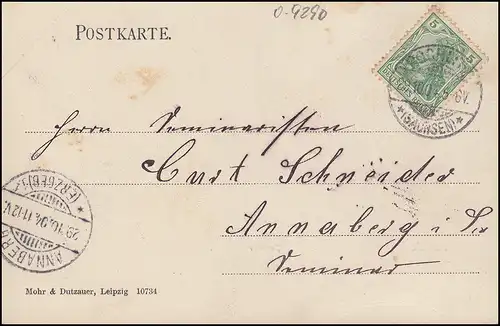 0-9290
POSTKARTE.
5 5
DEUTSCHES
6V.
*(SACHSEN)*
Herrn Seminaristen
Curt Schneider
Annaberg i. Sa
Seminar
ANNABERG
29.10.04. 11-12V.
*(ERZGEB.)
Mohr & Dutzauer, Leipzig 10734